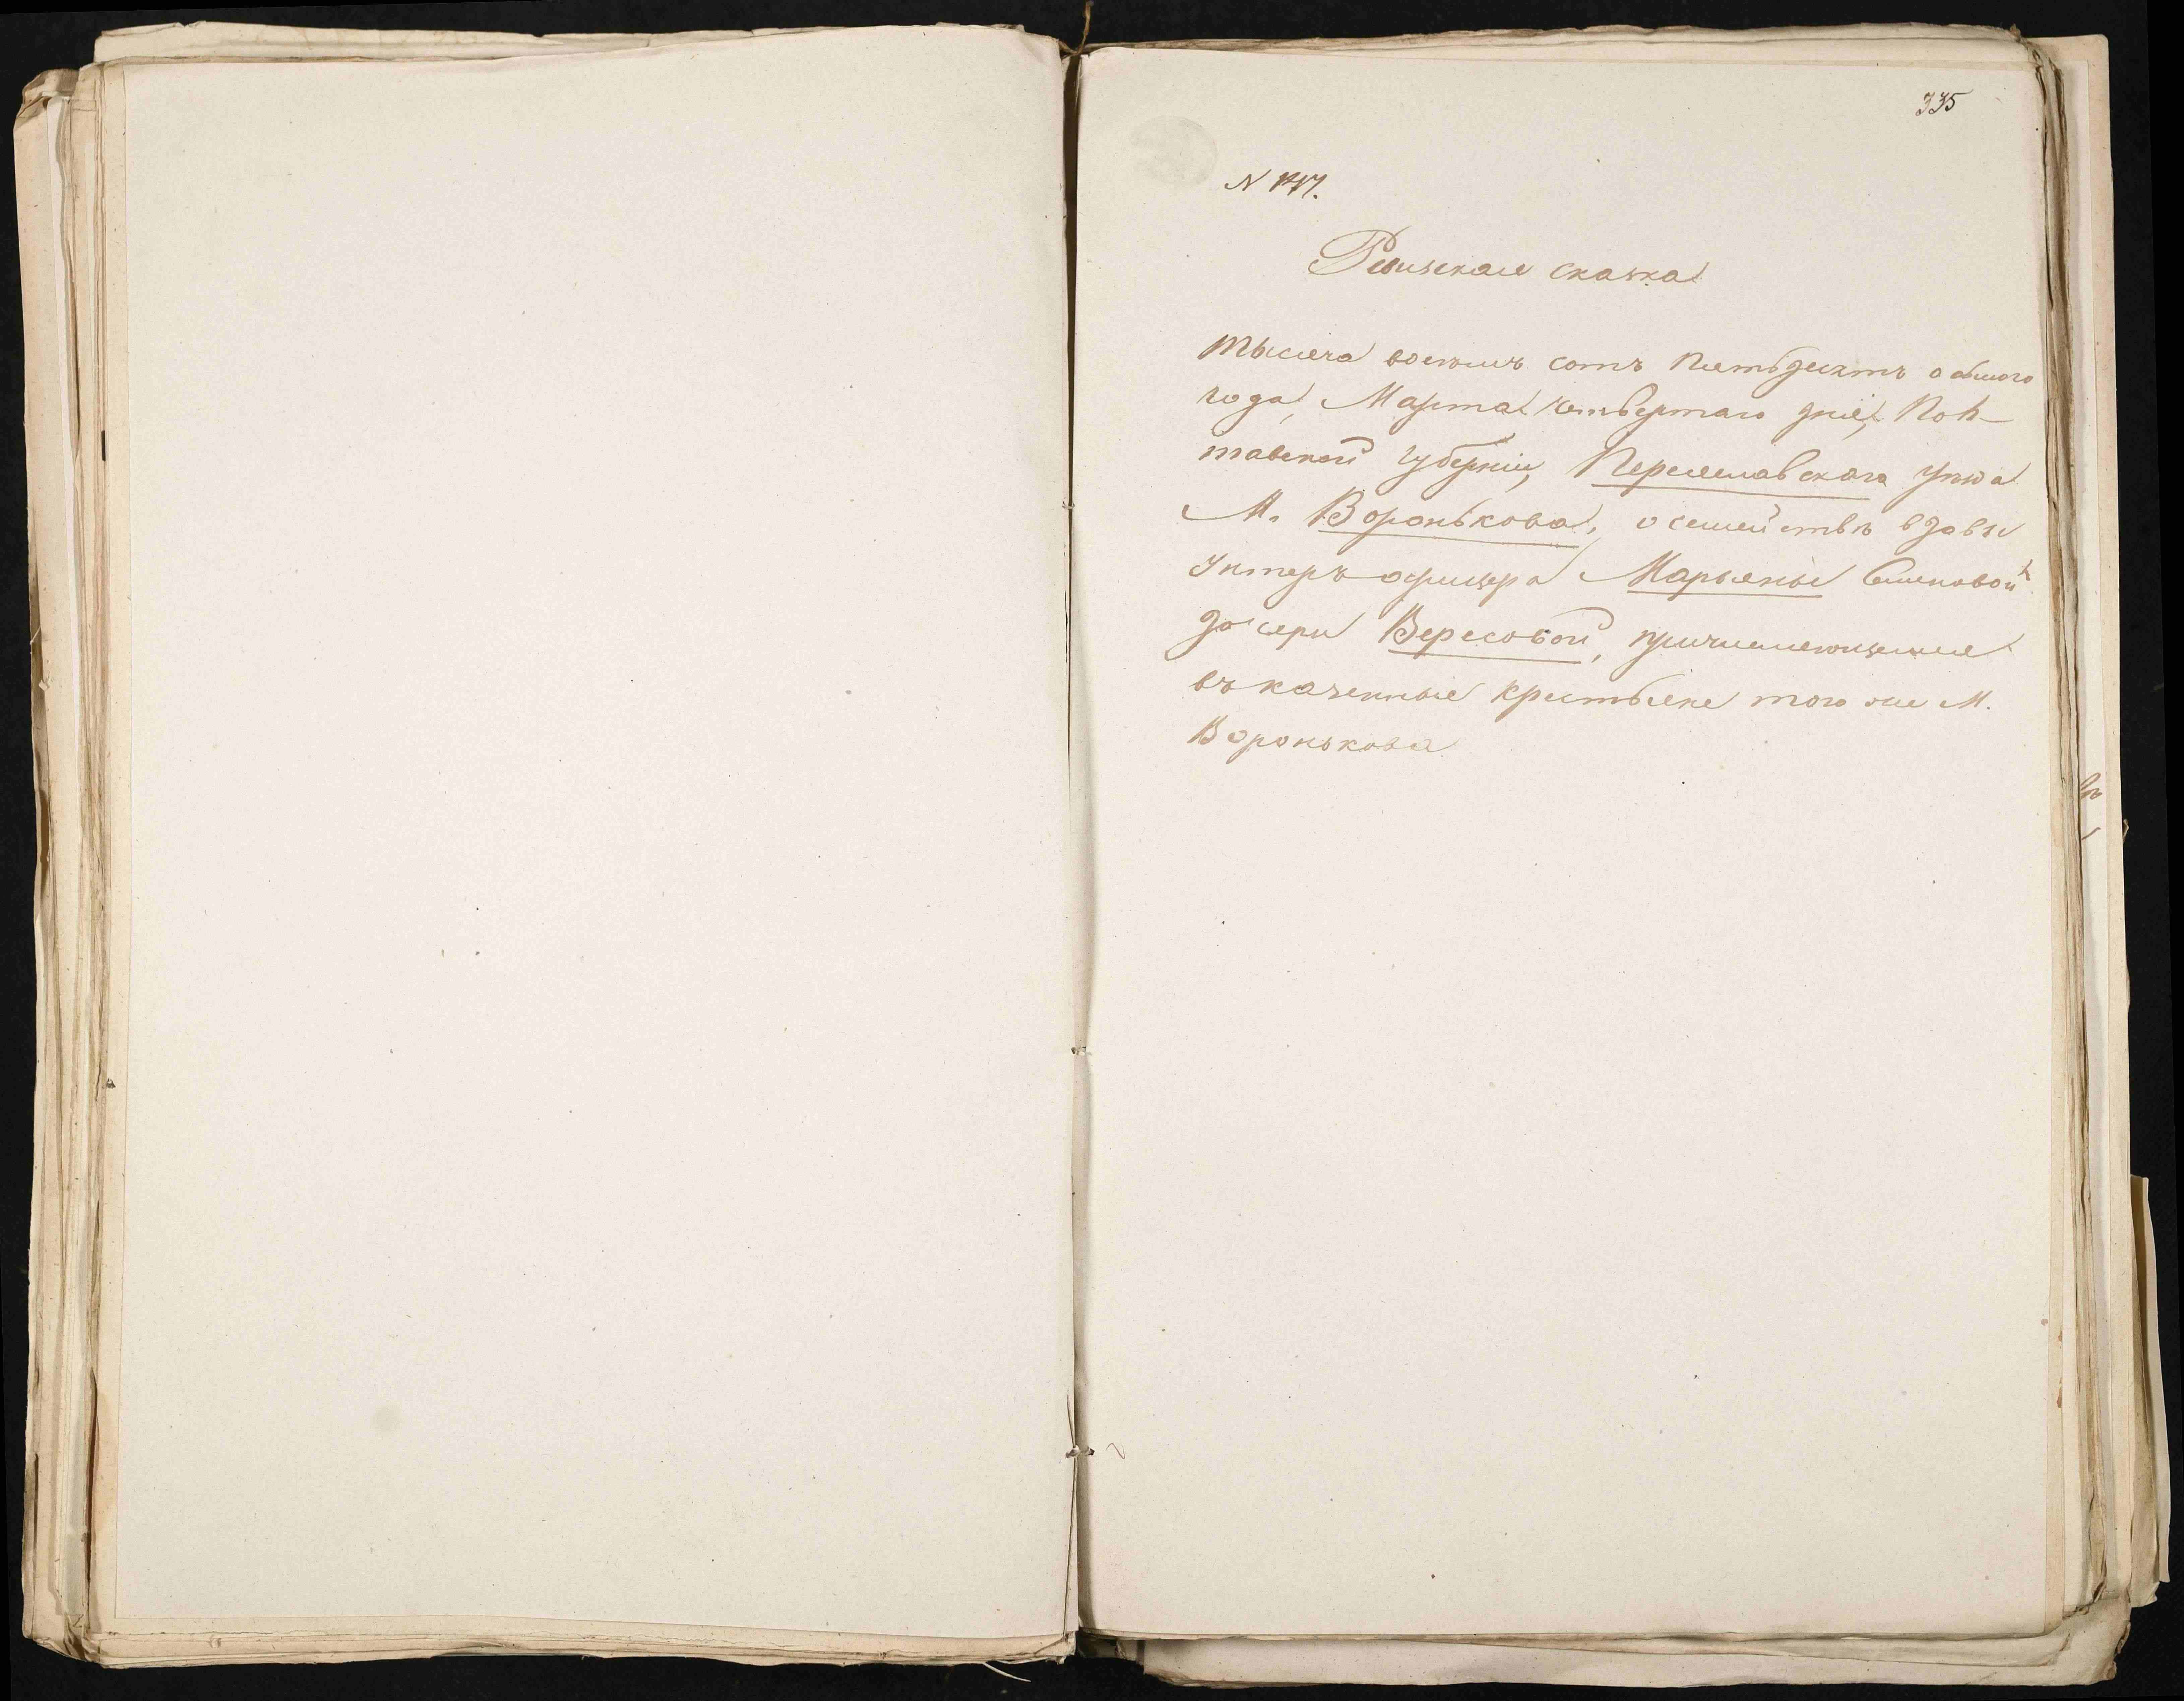 335
N 147.
Ревизская сказка
Тысяча восемь сотъ Пятьдесятъ осьмого
года, Марта четвертаго дня, Пол-
тавской Губерніи, Переяславскаго уѣзда
М. Воронькова, о семействѣ вдовы
Унтеръ-офицера Марьяны Семеновой
дочери Вересовой, причисляющемся
въ казенные крестьяне того же М.
Воронькова